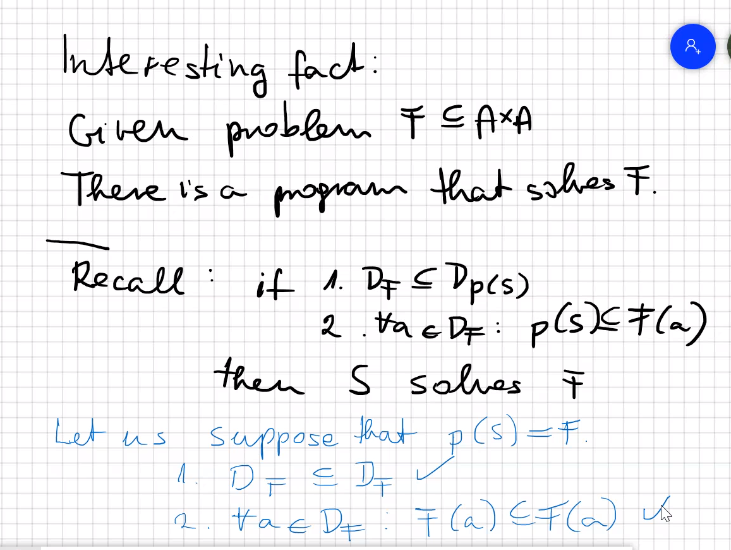 Interesting fact:
Given problem F ⊆ A×A
There is a program that solves F.
Recall: if 1. D_F ⊆ D_p(s)
2. ∀a ∈ D_F: p(s) ⊆ F(a)
then S solves F
Let us suppose that p(s) = F.
1. D_F ⊆ D_F ✓
2. ∀a ∈ D_F: F(a) ⊆ F(a) ✓